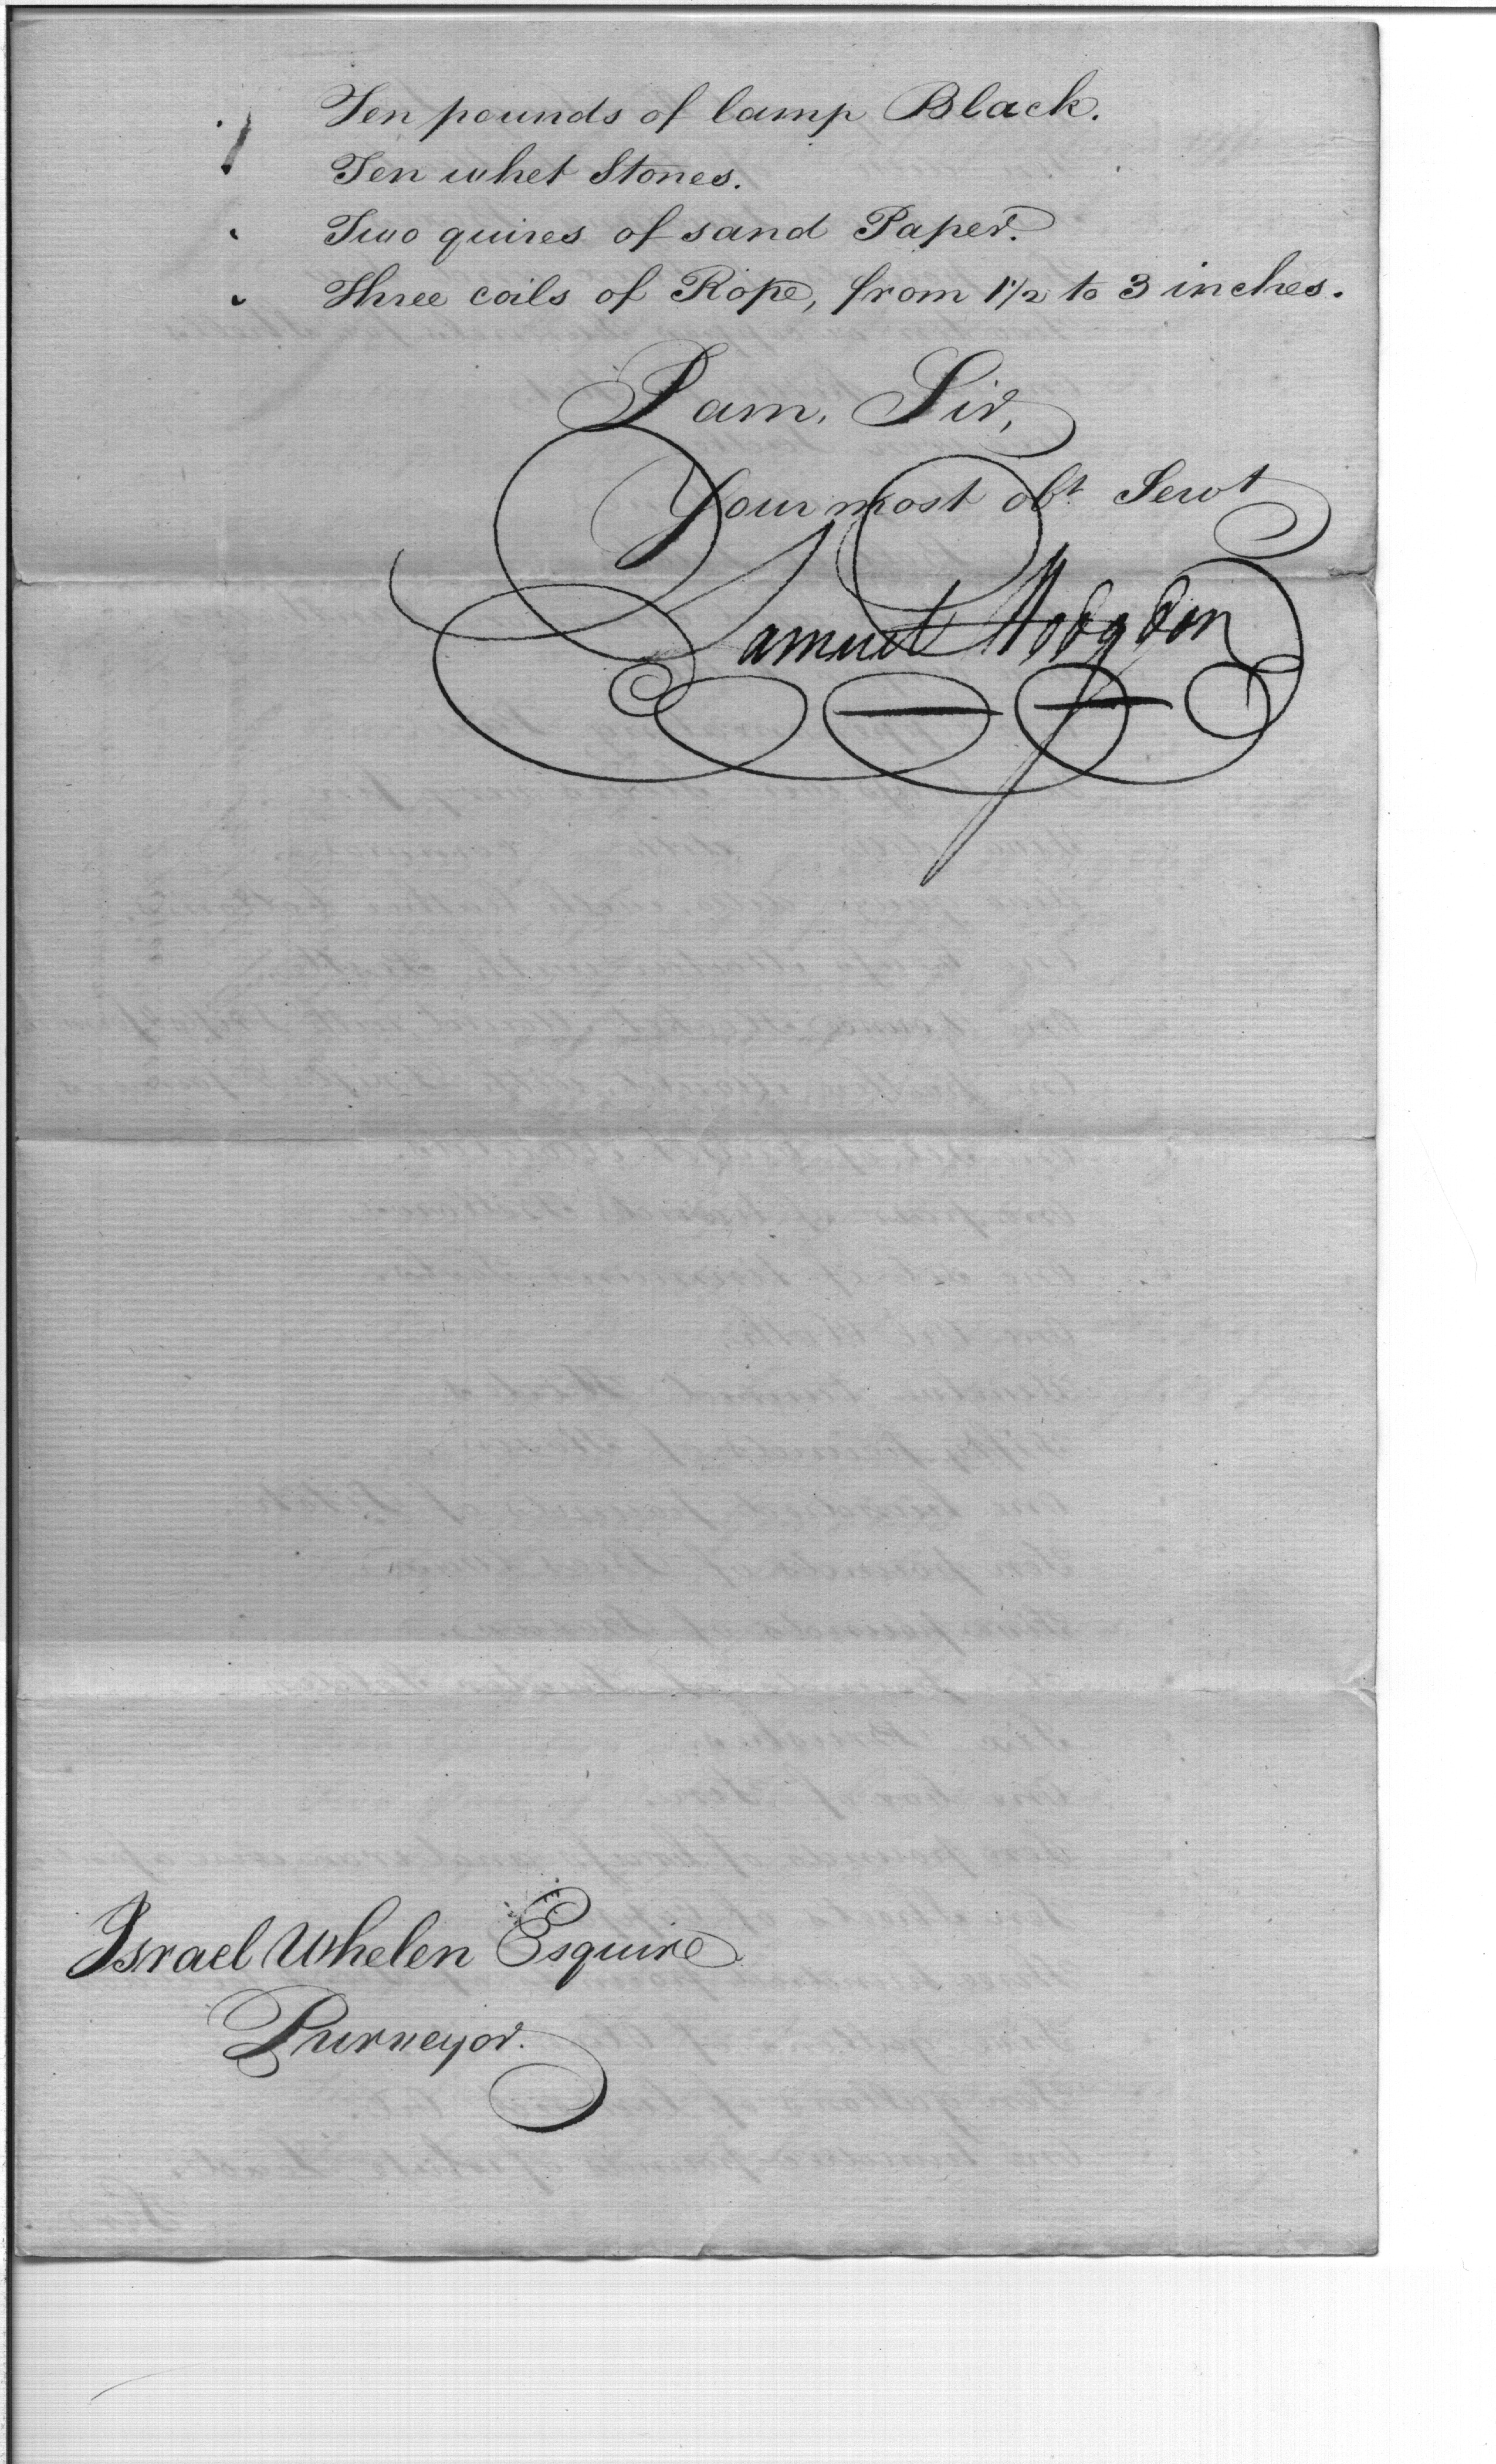 Ten pounds of lamp Black.
Ten whet Stones.
Two quires of sand Paper.
Three coils of Rope, from 1 1/2 to 3 inches.
I am, Sir,
Your most obt. Servt
Samuel Hodgdon
Israel Whelen Esquire
Purveyor.